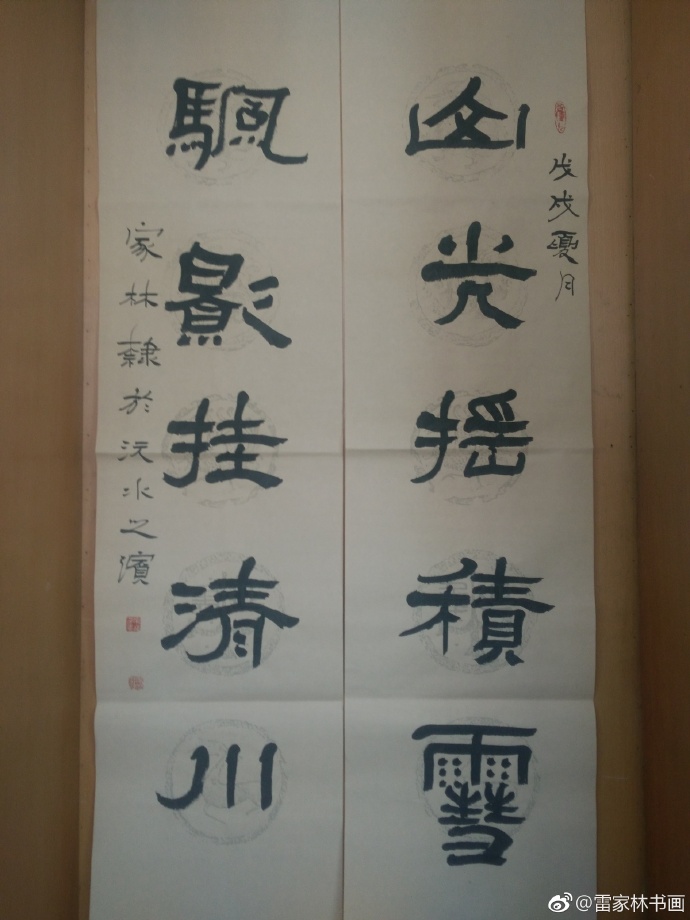 戊戌夏月
山光摇積雪
颿影挂清川
家林隸於沅水之濱
@雷家林书画